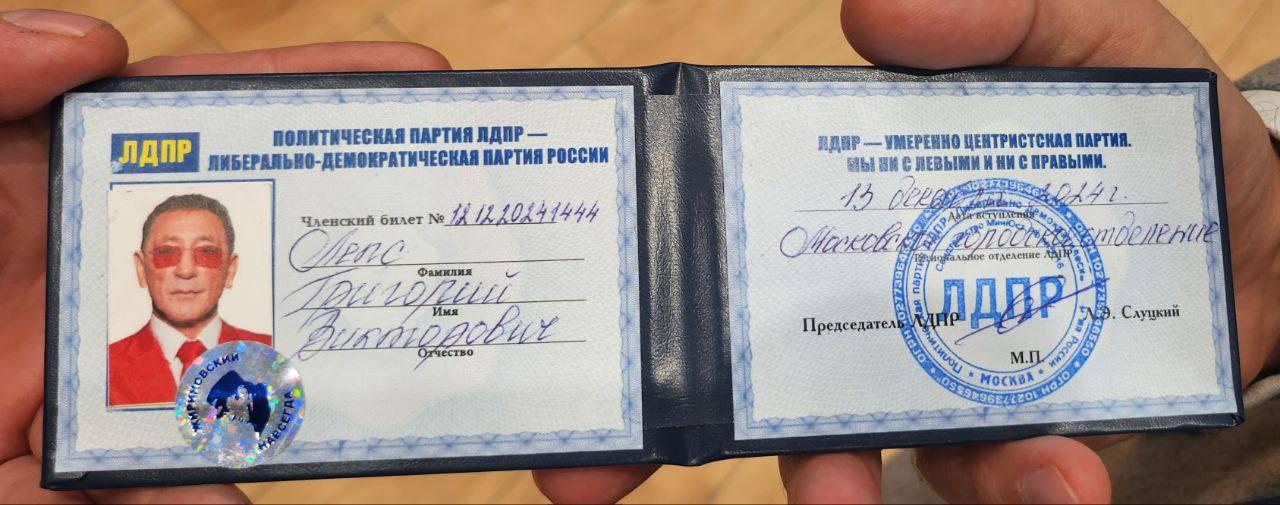 ЛДПР
ПОЛИТИЧЕСКАЯ ПАРТИЯ ЛДПР —
ЛИБЕРАЛЬНО-ДЕМОКРАТИЧЕСКАЯ ПАРТИЯ РОССИИ
Членский билет № 12.12.20241444
Лепс
Фамилия
Григорий
Имя
Викторович
Отчество
ЖИРИНОВСКИЙ
НАВСЕГДА
ЛДПР — УМЕРЕННО ЦЕНТРИСТСКАЯ ПАРТИЯ.
МЫ НИ С ЛЕВЫМИ И НИ С ПРАВЫМИ.
13 2024г.
Дата вступления
Московское городское отделение
Региональное отделение ЛДПР
Председатель ЛДПР Л.Э. Слуцкий
М.П.
ЛДПР
МОСКВА
ОГРН 1027739646550